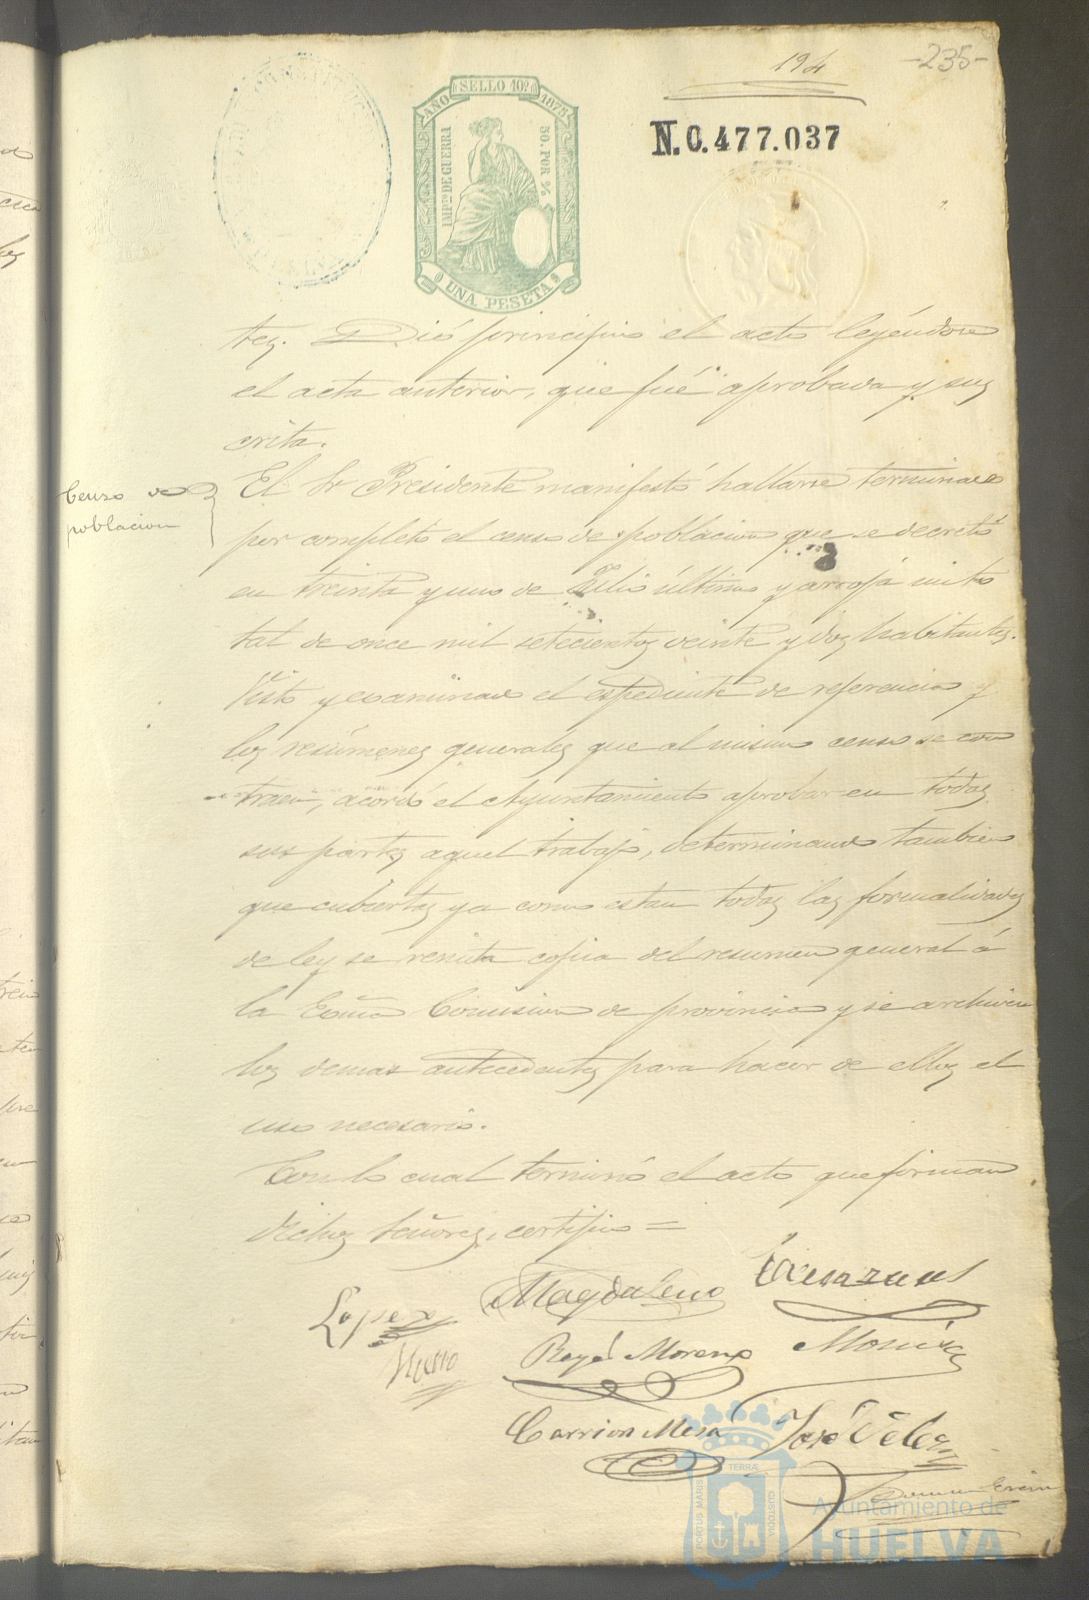 194
-235-
AÑO SELLO 10º 1878
IMPtO DE GUERRA
50. POR %
UNA PESETA
N. 0.477.037
tez. Dió principio el acto leyéndose
el acta anterior, que fué aprobada y sus
crita.
Censo de
poblacion
El Sr Presidente manifestó hallarse terminado
por completo el censo de poblacion que se decretó
en treinta y uno de Julio último y arroja un to
tal de once mil setecientos veinte y dos habitantes.
Visto y examinado el espediente de referencia y
los resúmenes generales que al mismo censo se con
traen, acordó el Ayuntamiento aprobar en todas
sus partes aquel trabajo, determinando tambien
que cubiertas ya como estan todas las formalidades
de ley se remita copia del resumen general á
la Exmã Comision de provincia y se archiven
los demas antecedentes para hacer de ellos el
uso necesario.
Con lo cual terminó el acto que firman
dichos Señores, certifico =
Lopez
Magdaleno
Rayó Moreno
Carrion Mesa
José Velez
PORTUS MARIS
TERRÆ
CUSTODIA
Ayuntamiento de
HUELVA